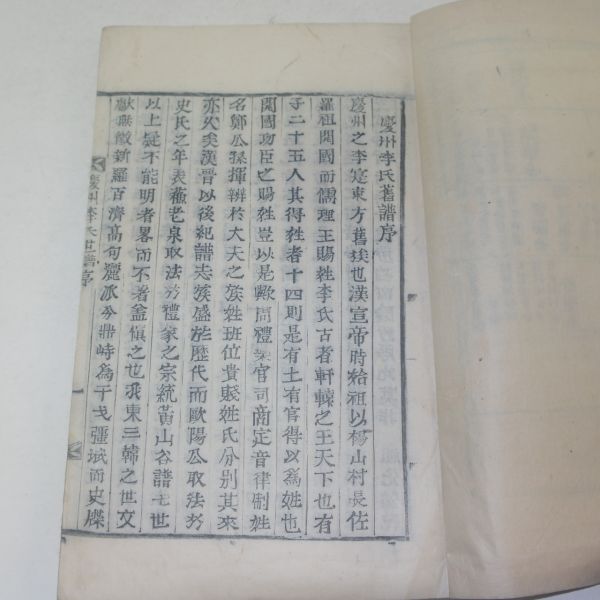 慶州李氏舊譜序
慶州之李寔東方舊族也漢宣帝時始祖以楊山村長佐
羅祖開國而儒理王賜姓李氏古者軒轅之王天下也有
子二十五人其得姓者十四則是有土有官得以為姓也
開國功臣之賜姓豈以是歟周禮 官司商定音律制姓
名鄭公孫揮辨於大夫之族姓班位貴賤姓氏分別其來
亦久矣漢晉以後紀譜志族盛於歷代而歐陽公取法於
史氏之年表蘇老泉取法於禮家之宗統黃山谷譜七世
以上疑不能明者畧而不著盖愼之也我東三韓之世文
獻無徵新羅百濟高句麗派分鼎峙為干戈疆域而史牒
慶州李氏世譜序